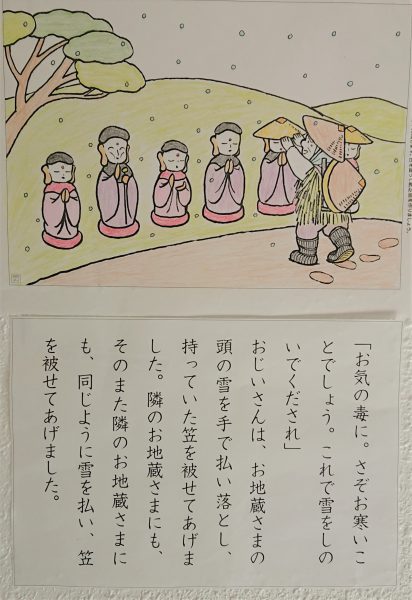 「お気の毒に。さぞお寒いこ
とでしょう。これで雪をしの
いでくだされ」
おじいさんは、お地蔵さまの
頭の雪を手で払い落とし、
持っていた笠を被せてあげま
した。隣のお地蔵さまにも、
そのまた隣のお地蔵さまに
も、同じように雪を払い、笠
を被せてあげました。